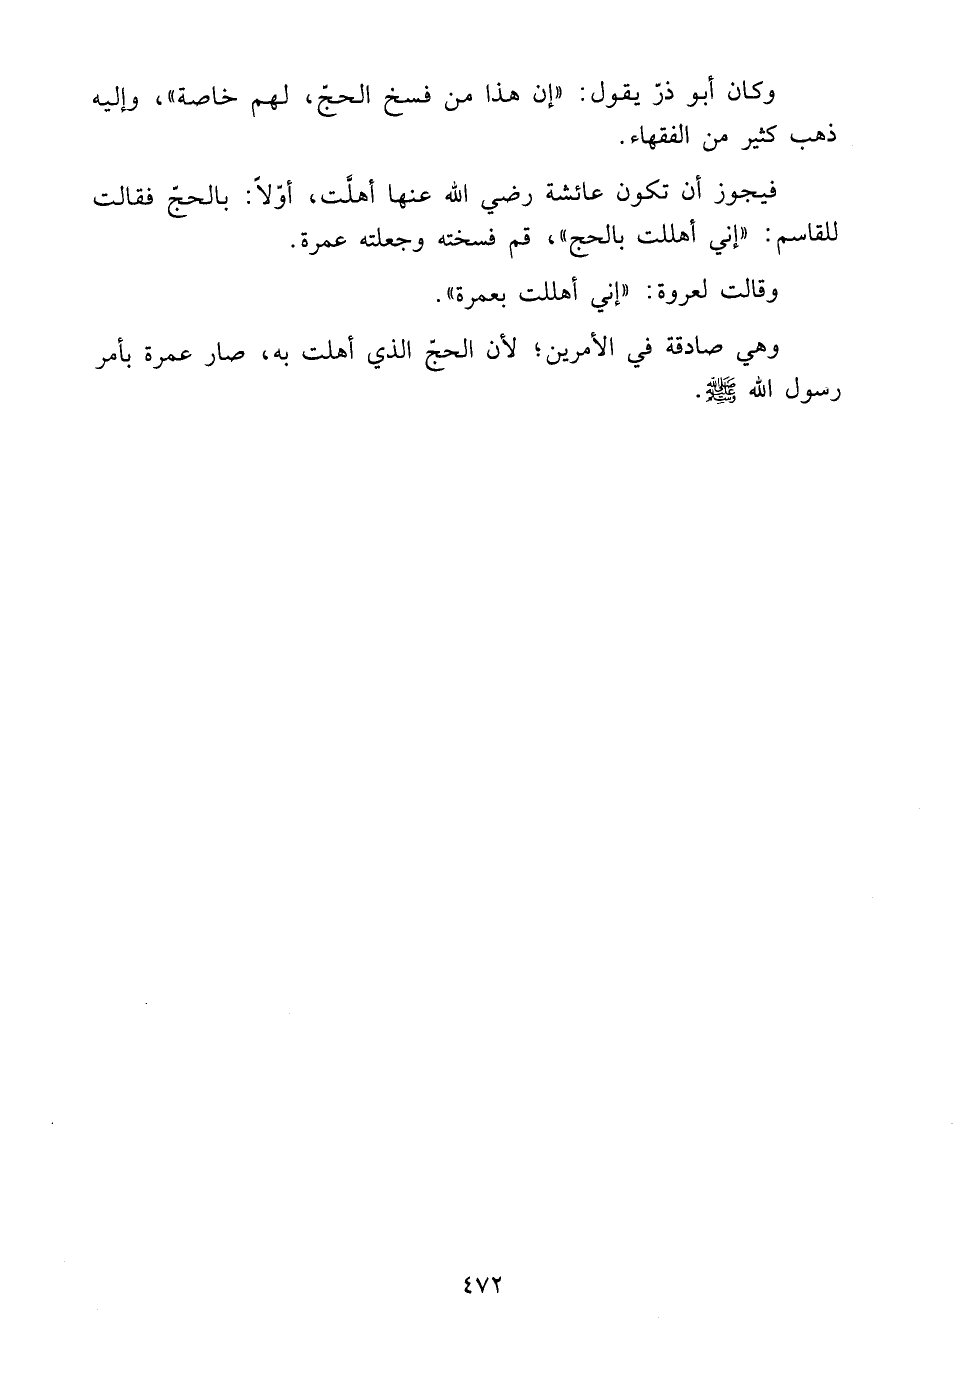 وكان أبو ذرّ يقول: «إن هذا من فسخ الحجّ، لهم خاصة»، وإليه
ذهب كثير من الفقهاء.
فيجوز أن تكون عائشة رضي الله عنها أهلَّت، أوّلاً: بالحجّ فقالت
للقاسم: «إني أهللت بالحج»، قم فسخته وجعلته عمرة.
وقالت لعروة: «إني أهللت بعمرة».
وهي صادقة في الأمرين؛ لأن الحجّ الذي أهلت به، صار عمرة بأمر
رسول الله ﷺ.
٤٧٢